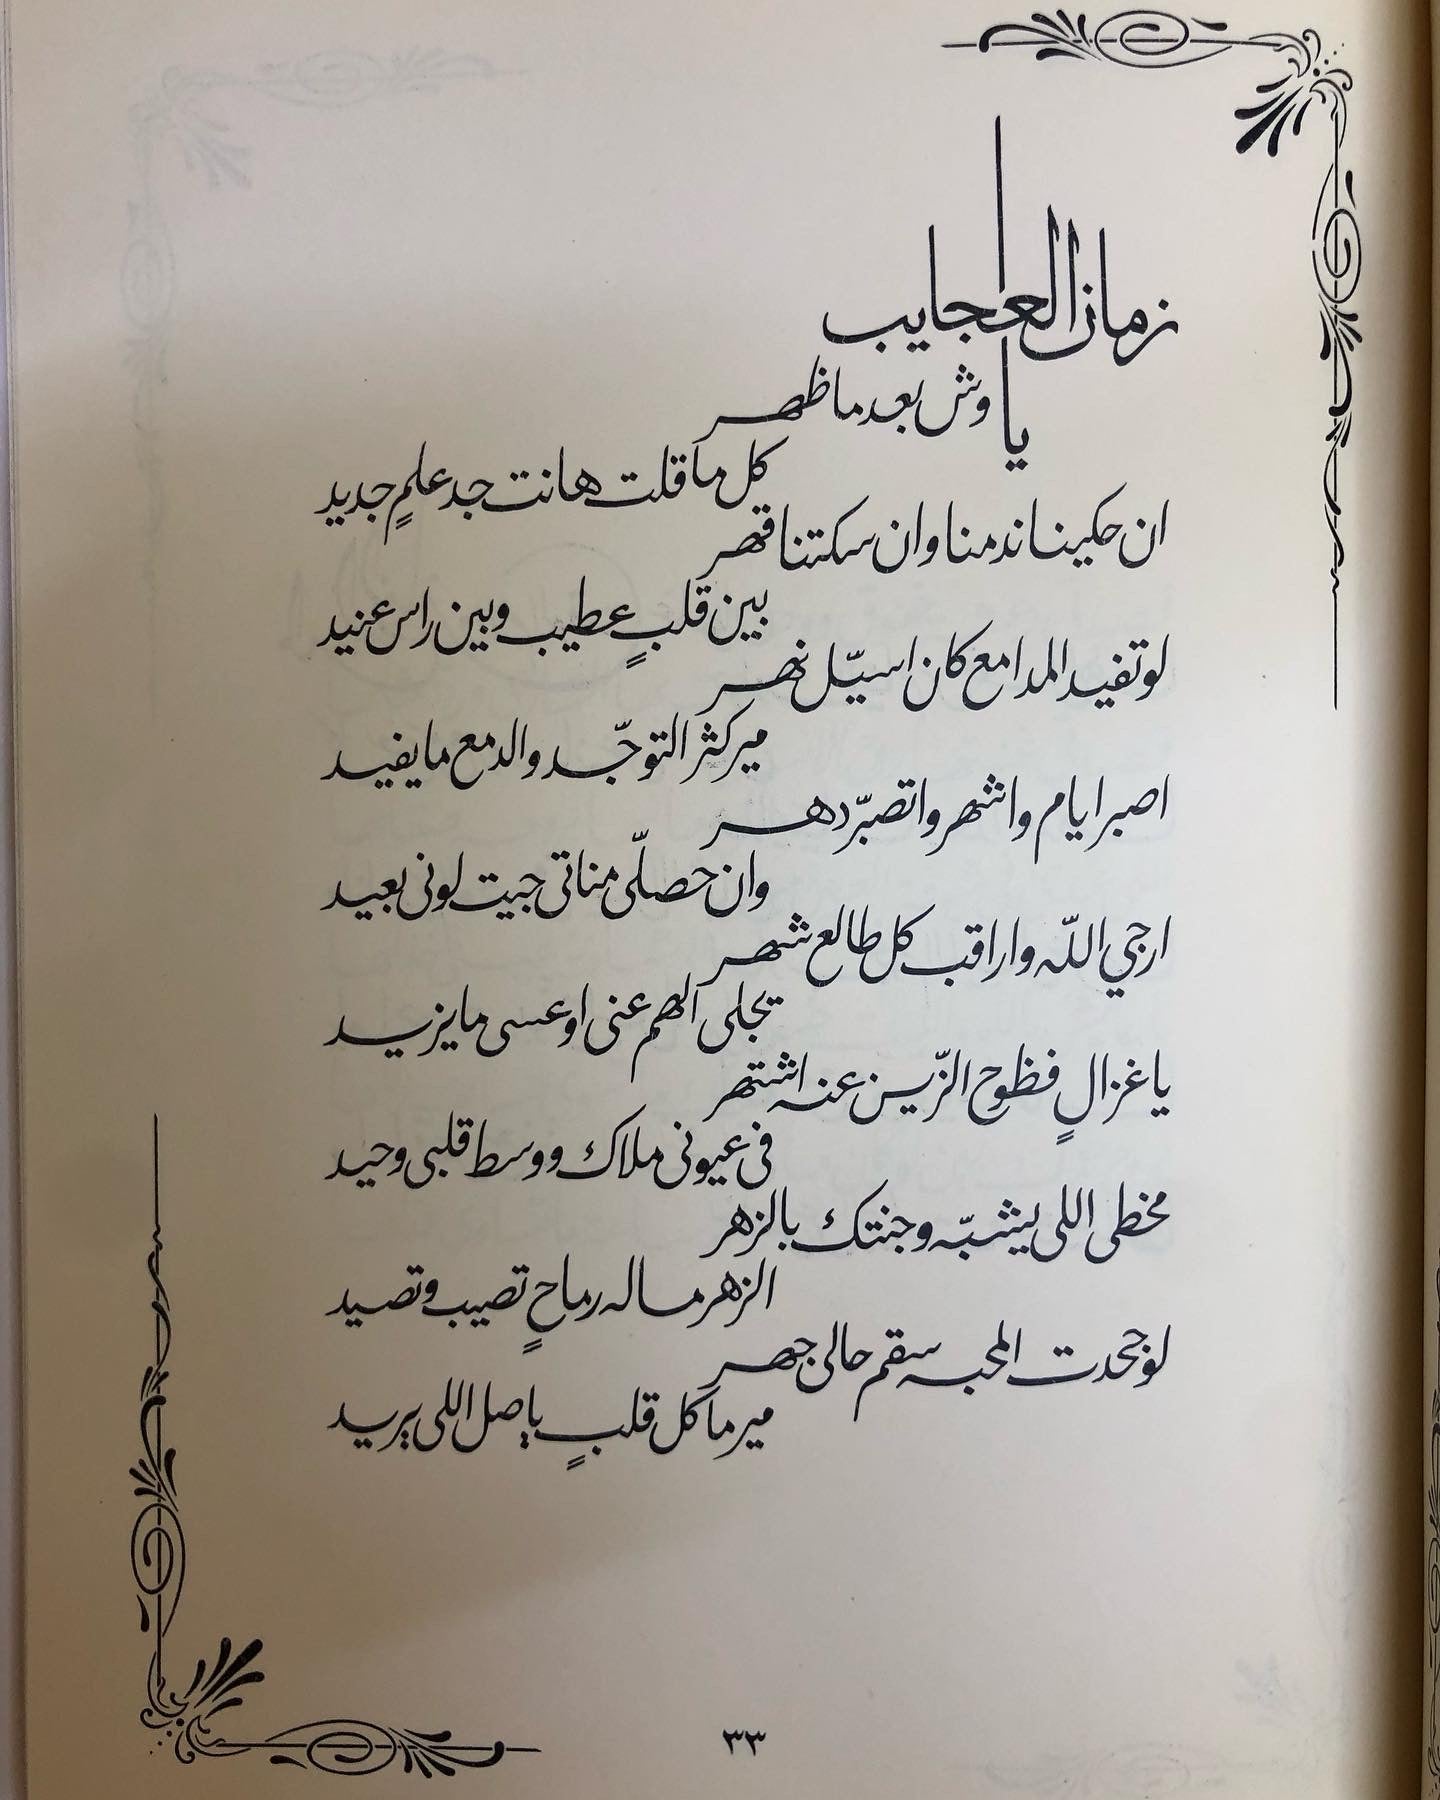 يا زمان العجايب
وش بعد ما ظهر
كل ما قلت هانت جد علمٍ جديد
ان حكينا ندمنا وان سكتنا قهر
بين قلبٍ عطيب وبين راس عنيد
لو تفيد المدامع كان اسيّل نهر
مير كثر التوجّد والدمع ما يفيد
اصبر ايام واشهر واتصبّر دهر
وان حصلّي مناتي جيت لوني بعيد
ارجي اللّه واراقب كل طالع شهر
يجلي الهم عني او عسى ما يزيد
يا غزالٍ فظوح الزّين عنه اشتهر
في عيوني ملاك ووسط قلبي وحيد
مخطي اللي يشبّه وجنتك بالزهر
الزهر ماله رماحٍ تصيب وتصيد
لو جحدت المحبه سقم حالي جهر
مير ما كل قلبٍ ياصل اللي يريد
٣٣